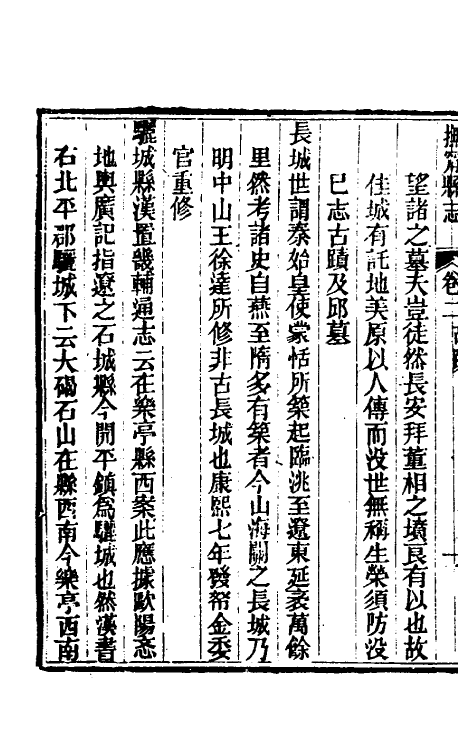 撫寧縣志　卷二　古蹟
望諸之墓夫豈徒然長安拜董相之墳良有以也故
佳城有託地美原以人傳而没世無稱生榮須防没
已志古蹟及邱墓
長城世謂秦始皇使蒙恬所築起臨洮至遼東延袤萬餘
里然考諸史自燕至隋多有築者今山海關之長城乃
明中山王徐達所修非古長城也康熙七年發帑金委
官重修
驪城縣漢置畿輔通志云在樂亭縣西案此應據歐陽忞
地輿廣記指遼之石城縣今開平鎮爲驪城也然漢書
右北平郡驪城下云大碣石山在縣西南今樂亭西南